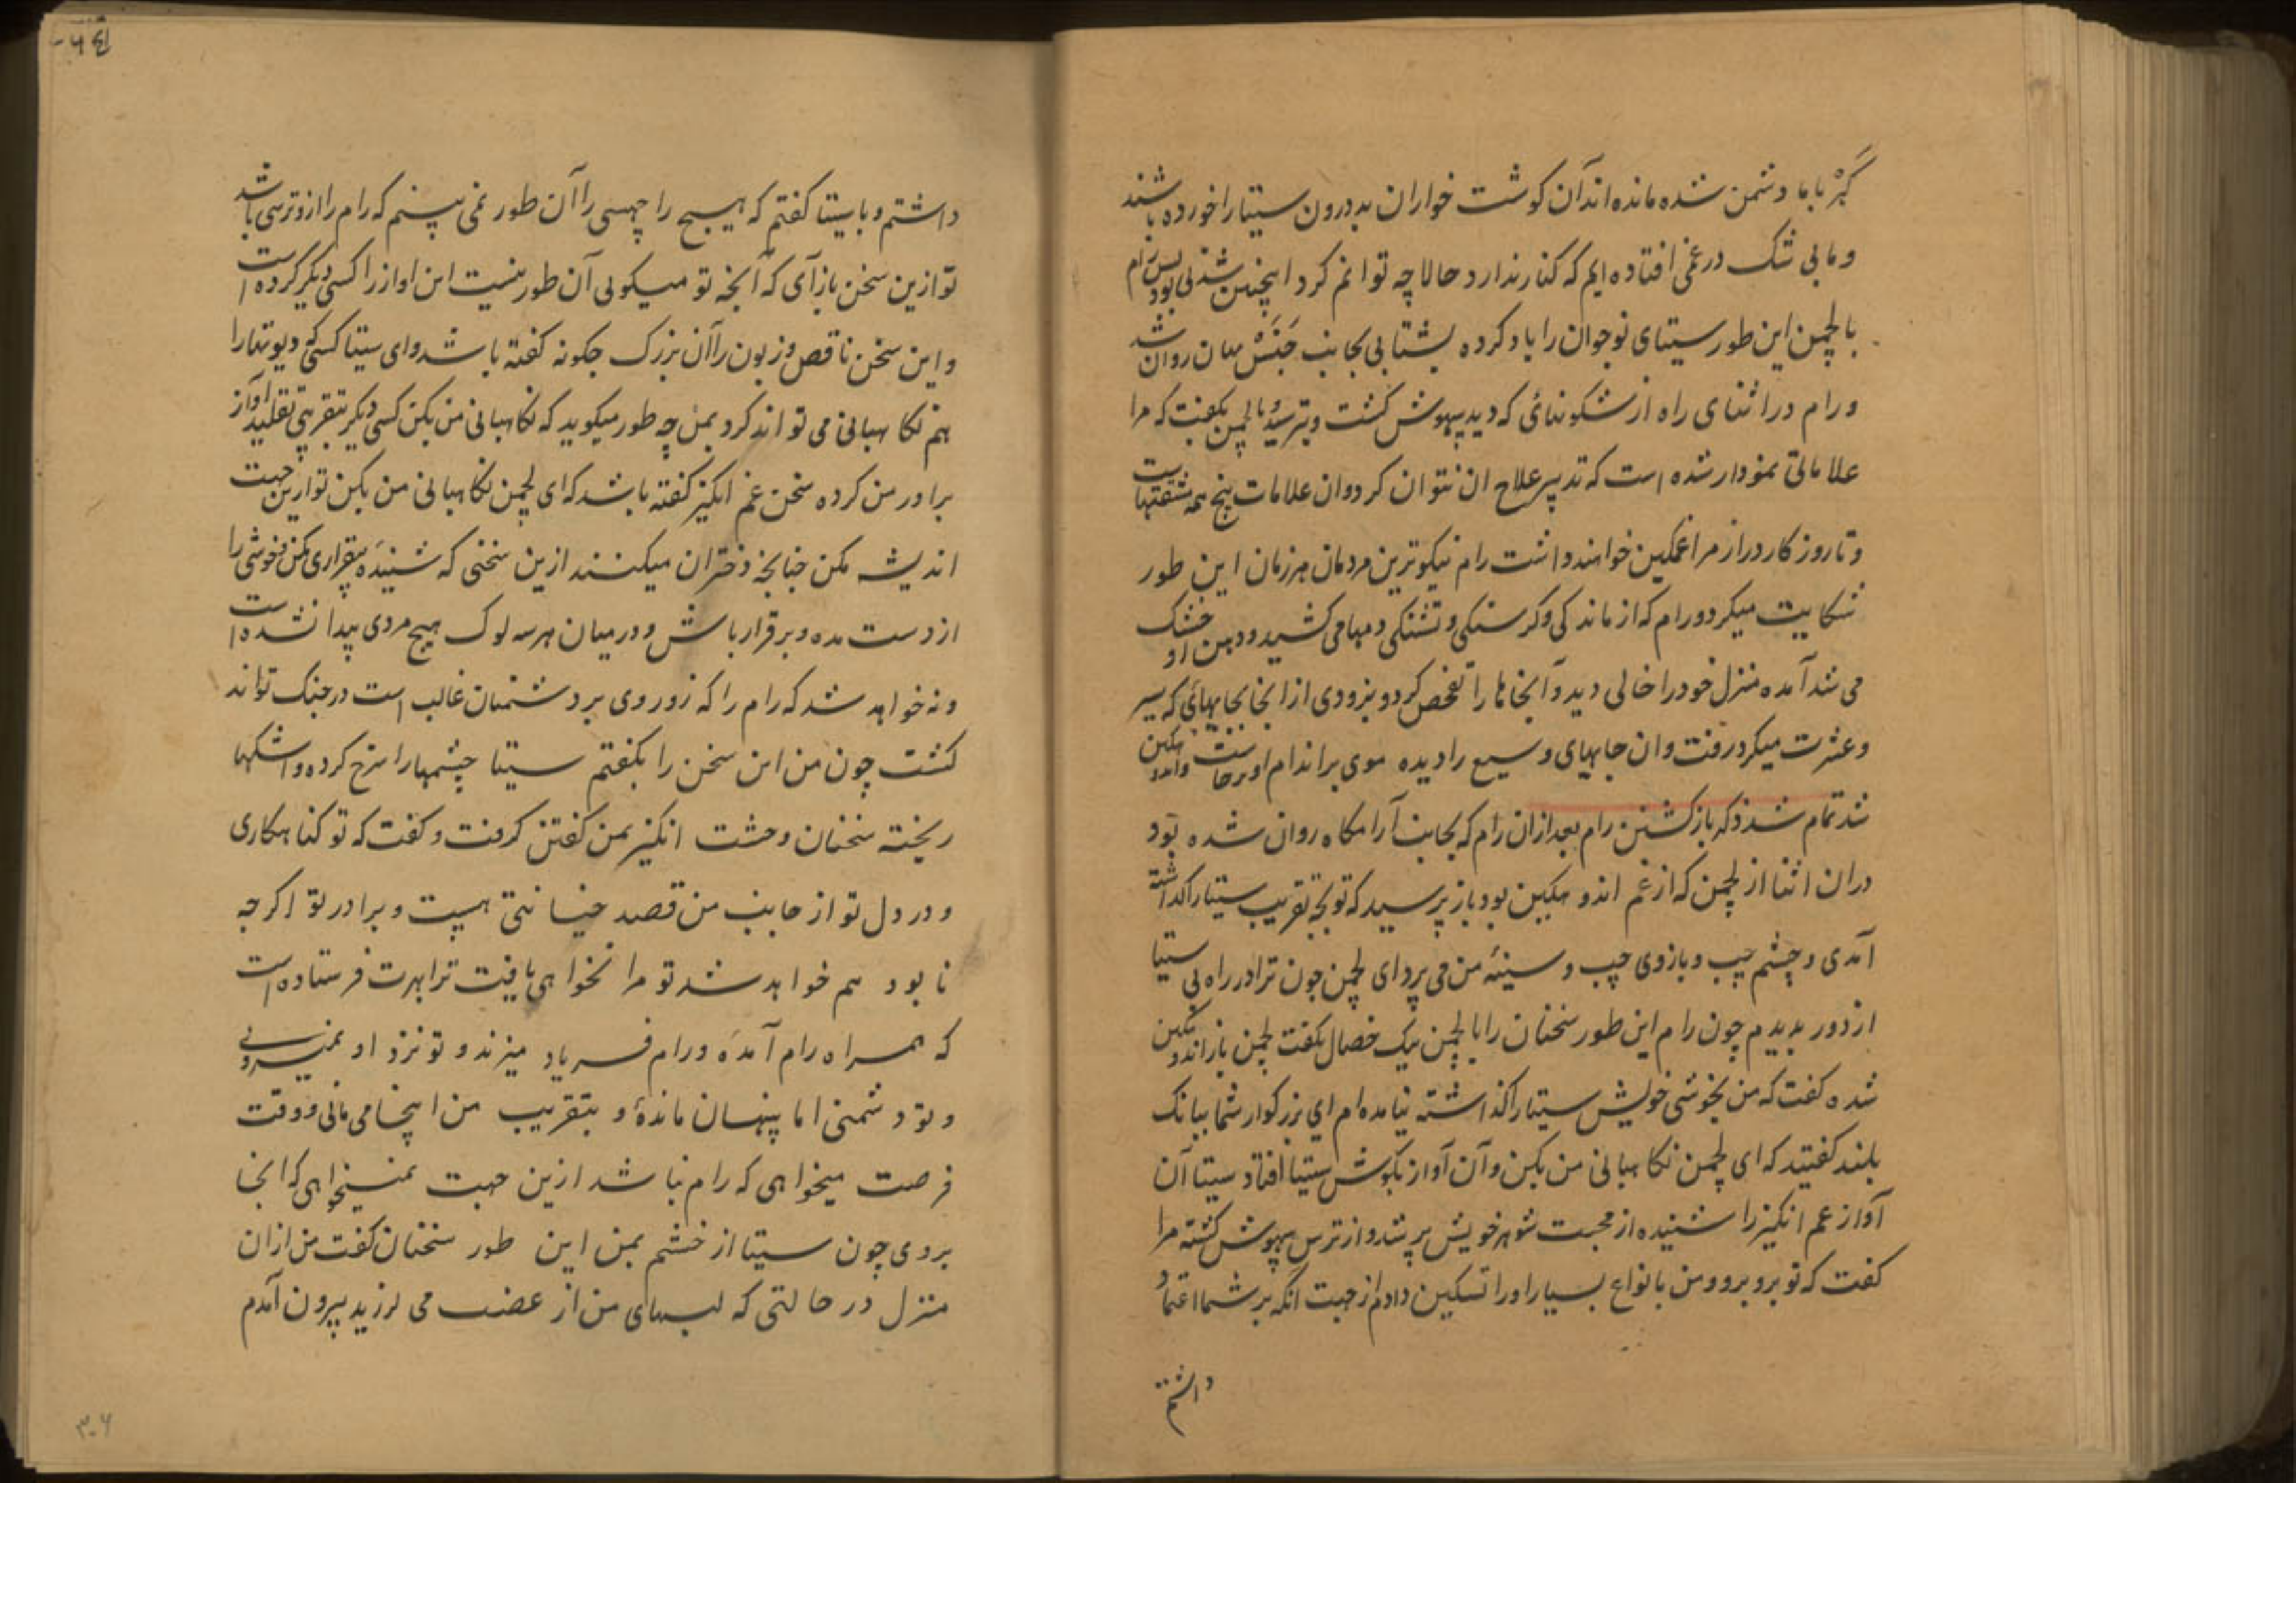 کبر با ما دشمن شده مانده اند آن کوشت خواران بد درون سیتا را خورده باشند
و ما بی شک در غمی افتاده ایم که کنار ندارد حالا چه توانم کرد اینچنین شدنی بود پس رام
با لچمن این طور سیتای نوجوان را یاد کرده بشتابی بجانب جنستهان روان شد
و رام در اثنای راه از شکونهائی که دید بیهوش کشت و بترسید و با لچمن بکفت که مرا
علاماتی نمودار شده است که تدبیر علاج ان نتوان کرد و ان علامات بیخ همه مشقتهاست
و تا روز کار دراز مرا غمکین خواهند داشت رام نیکوترین مردمان هر زمان این طور
شکایت میکرد و رام که از ماندکی و کرسنکی و تشنکی دمها می کشید و دهن او خشک
می شد آمده منزل خود را خالی دید و آنجاها را تفحص کرد و بزودی از انجا بجاهائی که سیر
و عشرت میکرد رفت و ان جاهای وسیع را دیده موی بر اندام او برخاست و اندوهکین
شد تمام شد ذکر باز کشتن رام بعد از ان رام که بجانب آرامکاه روان شده بود
دران اثنا از لچمن که از غم اندوهکین بود باز پرسید که تو بچه تقریب سیتا را کذاشته
آمدی و چشم چپ و بازوی چپ و سینه من می پرد ای لچمن چون ترا در راه بی سیتا
از دور بدیدم چون رام این طور سخنان را با لچمن نیک خصال بکفت لچمن باز اندوهکین
شده کفت که من بخوشی خویش سیتا را کذاشته نیامده ام ای بزرکوار شما ببانک
بلند کفتید که ای لچمن نکاهبانی من بکن و آن آواز بکوش سیتا افتاد سیتا آن
آواز غم انکیز را شنیده از محبت شوهر خویش پر شد و از ترس بیهوش کشته مرا
کفت که تو برو برو و من بانواع بسیار او را تسکین دادم از جهت انکه بر شما اعتماد
داشتم
داشتم و با سیتا کفتم که هیچ راچهسی را آن طور نمی بینم که رام را ازو ترسی باشد
تو ازین سخن باز آی که آنچه تو میکوئی آن طور نیست این اواز را کسی دیکر کرده است
و این سخن ناقص و زبون را آن بزرک چکونه کفته باشد و ای سیتا کسی که دیوتها را
هم نکاهبانی می تواند کرد بمن چه طور میکوید که نکاهبانی من بکن کسی دیکر بتقریبی تقلید آواز
برادر من کرده سخن غم انکیز کفته باشد که ای لچمن نکاهبانی من بکن تو ازین جهت
اندیشه مکن چنانچه دختران میکنند ازین سخنی که شنیدهٔ بیقراری مکن و خوشی را
از دست مده و برقرار باش و در میان هر سه لوک هیچ مردی پیدا نشده است
و نه خواهد شد که رام را که زور وی بر دشمنان غالب است در جنک تواند
کشت چون من این سخن را بکفتم سیتا چشمها را سرخ کرده و اشکها
ریخته سخنان وحشت انکیز بمن کفتن کرفت و کفت که تو کناهکاری
و در دل تو از جانب من قصد خیانتی هست و برادر تو اکرچه
نابود هم خواهد شد تو مرا نخواهی یافت ترا بهرت فرستاده است
که همراه رام آمدهٔ و رام فریاد میزند و تو نزد او نمیروی
و تو دشمنی اما پنهان ماندهٔ و بتقریب من اینجا می مانی و وقت
فرصت میخواهی که رام نباشد ازین جهت نمیخواهی که انجا
بروی چون سیتا از خشم بمن این طور سخنان کفت من ازان
منزل در حالتی که لبهای من از غضب می لرزید بیرون آمدم
۳۰۶